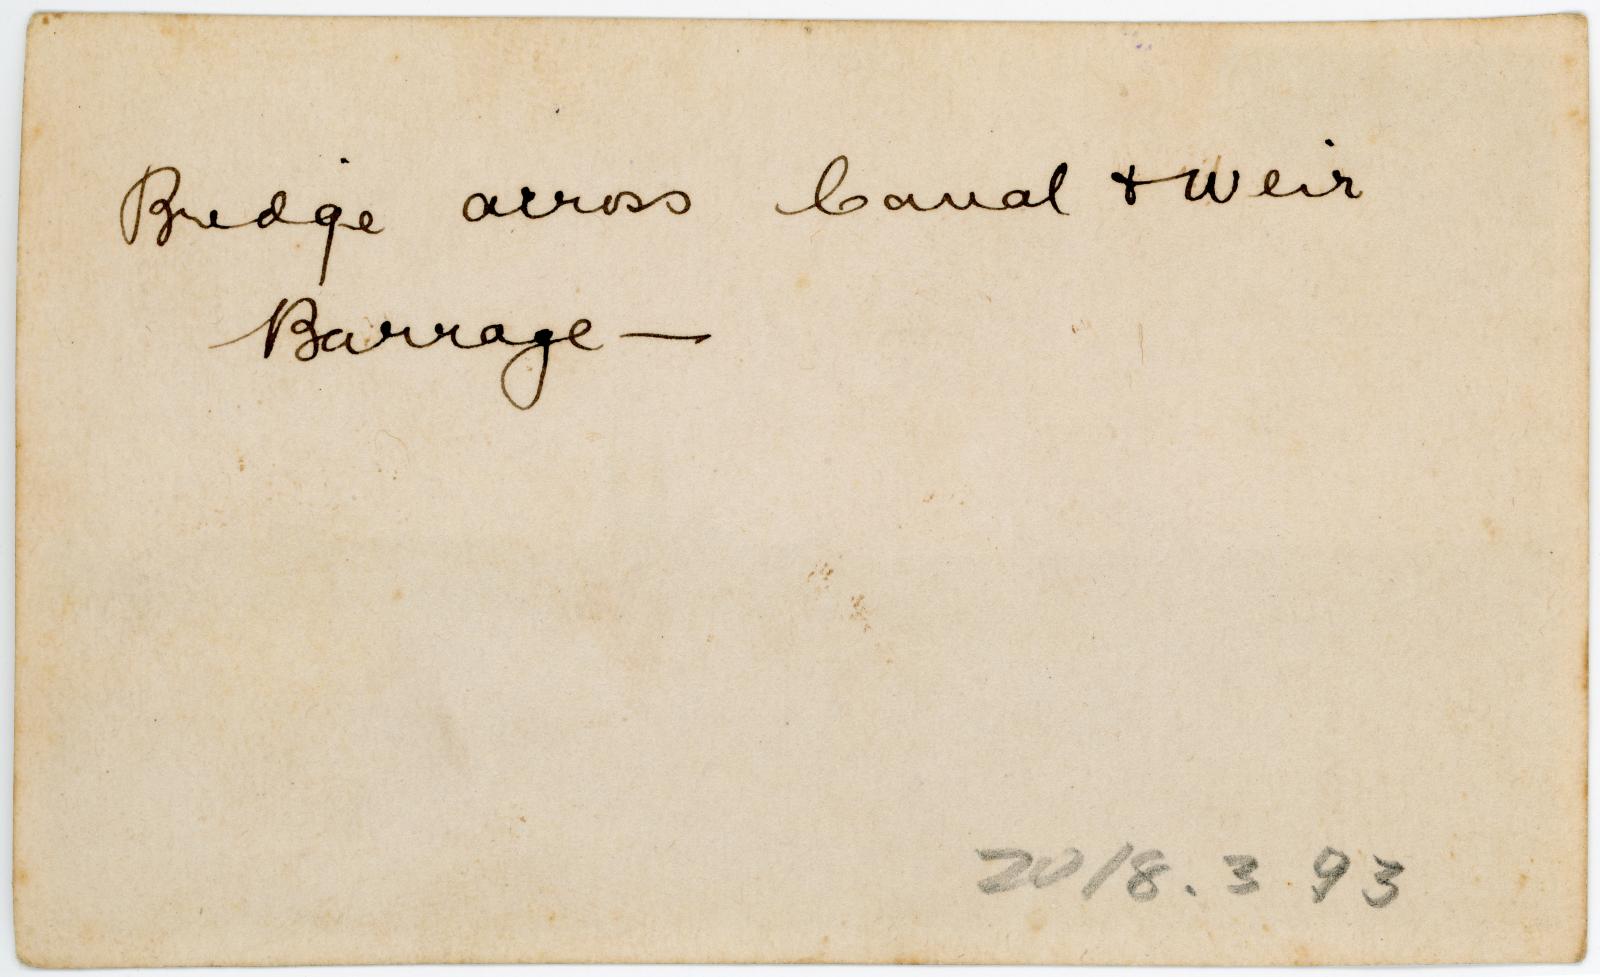 Bridge across Canal & Weir
Barrage —
2018.3 93